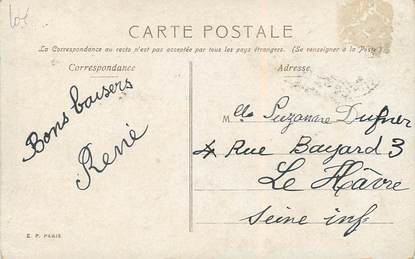 10€
CARTE POSTALE
La Correspondance au recto n'est pas acceptée par tous les pays étrangers. (Se renseigner à la Poste)
Correspondance
Adresse
Bons baisers
René
Mlle Suzanne Dufner
4 Rue Bayard 3
Le Hâvre
Seine inf
E. P. PARIS